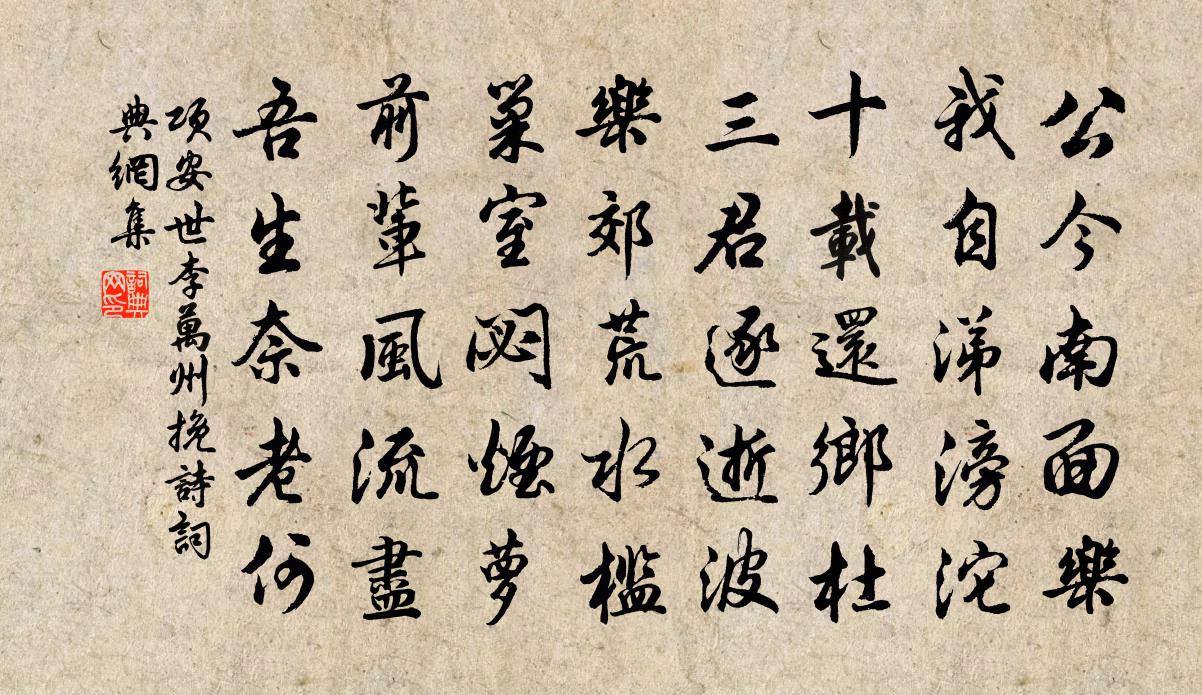 公今南面樂
我自涕滂沱
十載還鄉杜
三君逐逝波
樂郊荒水檻
巢室閟煙蘿
前輩風流盡
吾生奈老何
項安世李萬州挽詩詞
典網集
詞典網印